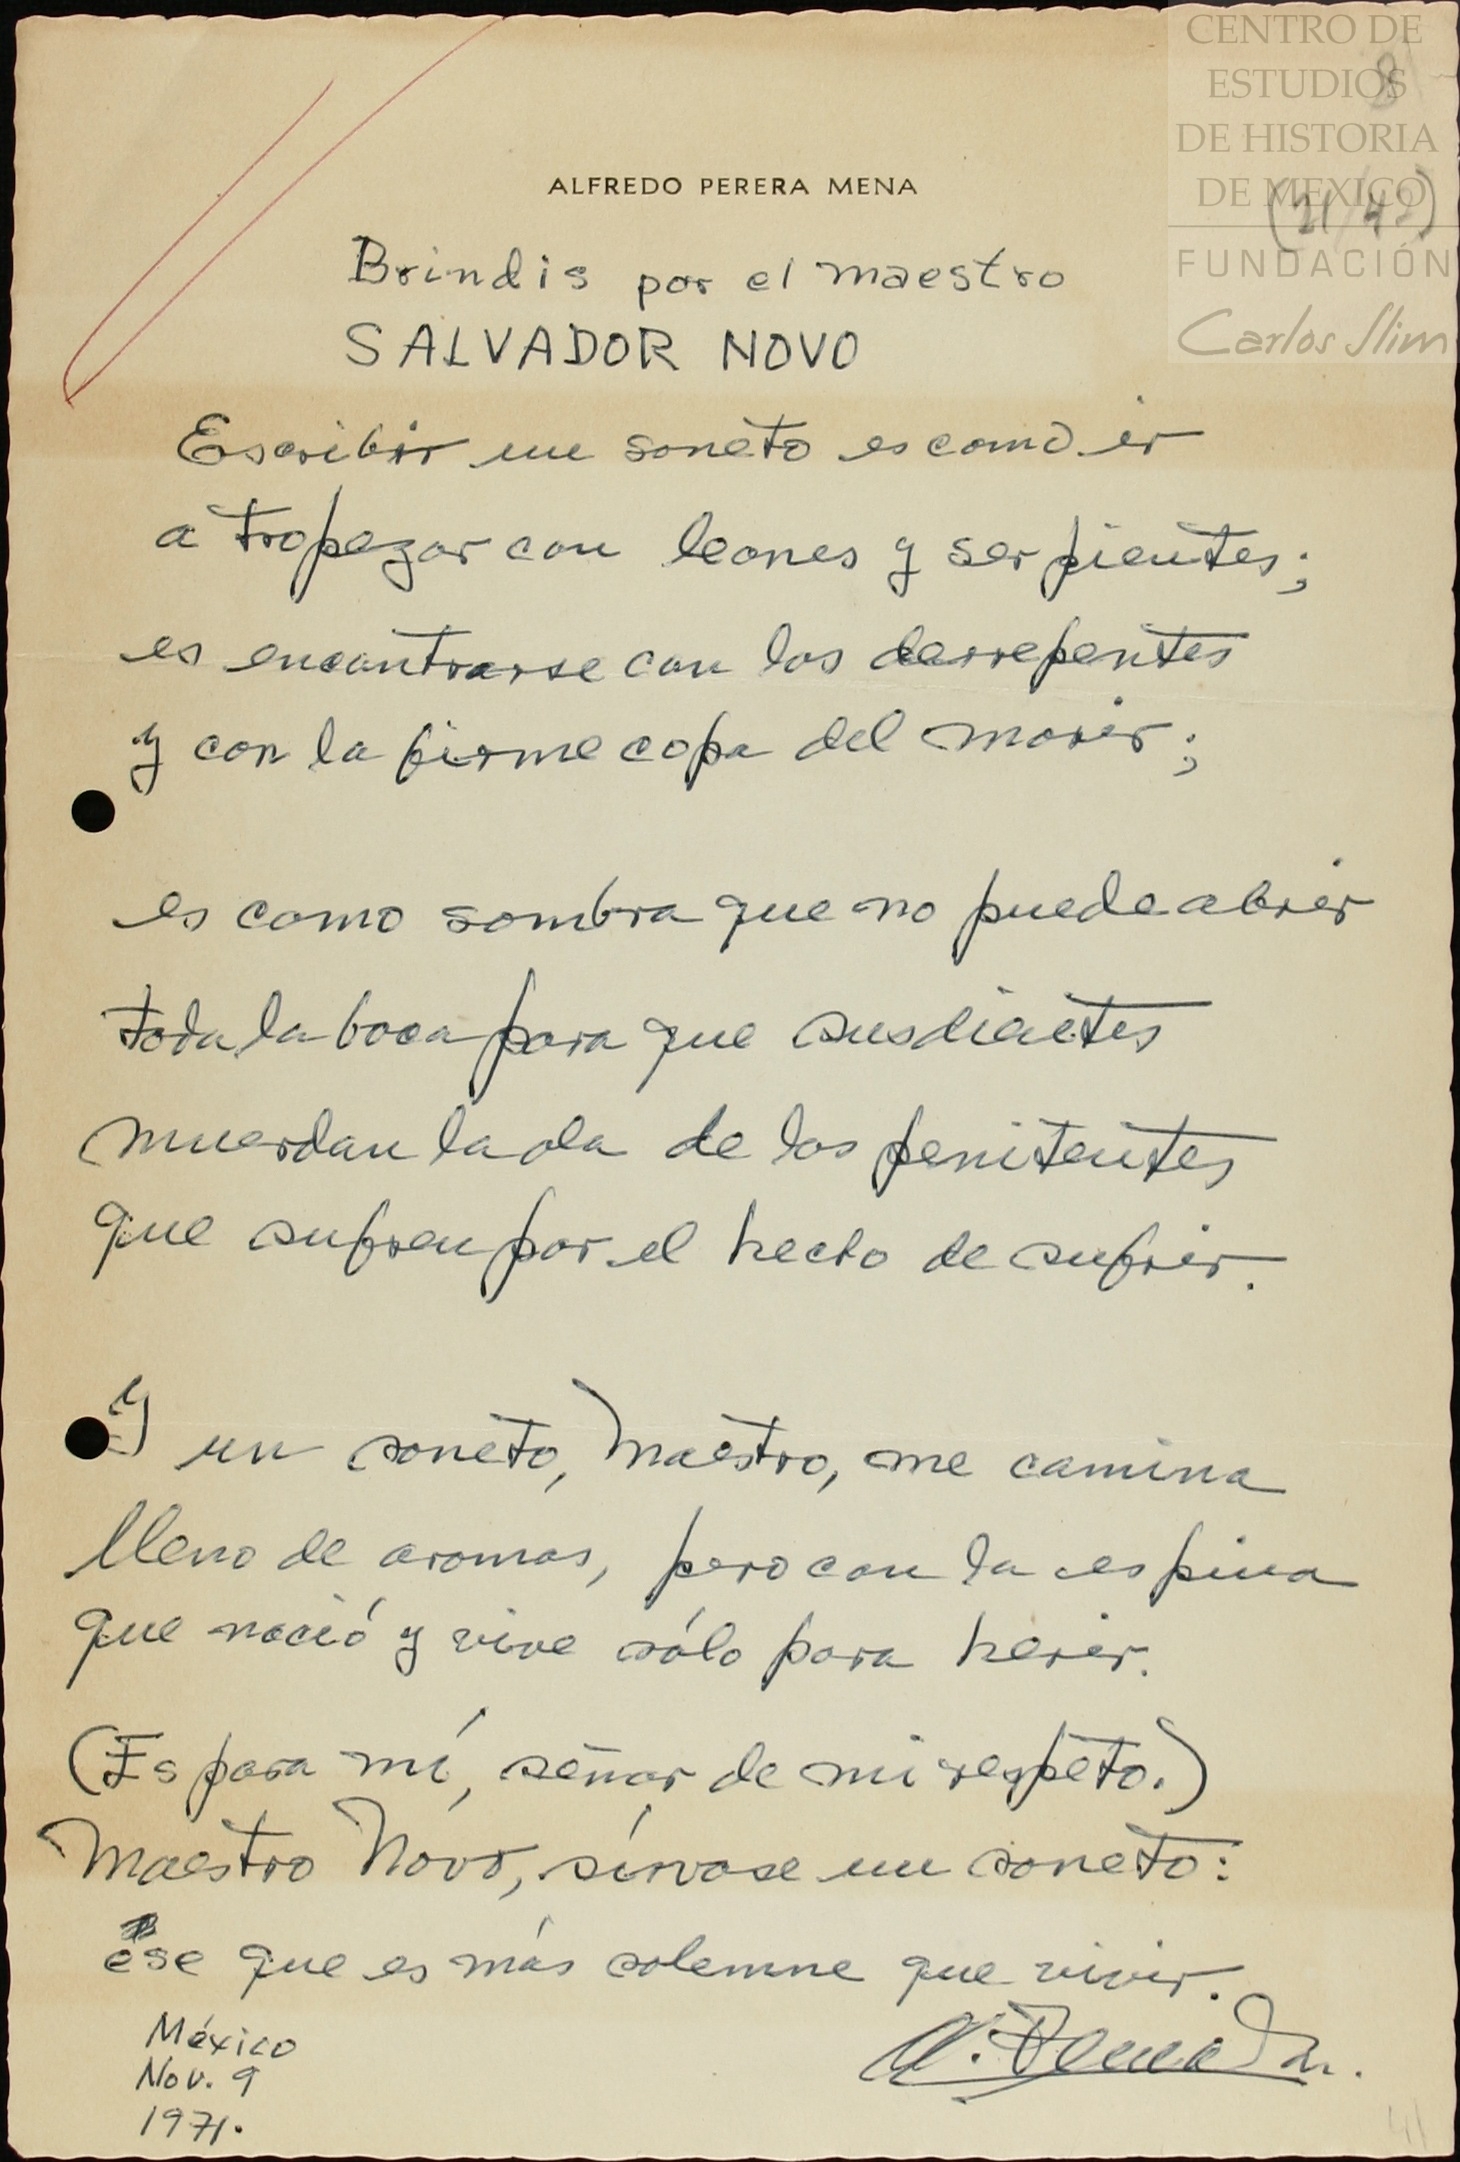 CENTRO DE
ESTUDIOS
DE HISTORIA
DE MEXICO
FUNDACIÓN
Carlos Slim
8
ALFREDO PERERA MENA
Brindis por el maestro
SALVADOR NOVO
Escribir un soneto es como ir
a tropezar con leones y serpientes;
es encontrarse con los derrepentes
y con la firme copa del morir;
es como sombra que no puede abrir
toda la boca para que sus dientes
muerdan la ola de los penitentes
que sufren por el hecho de sufrir.
Y un soneto, Maestro, me camina
lleno de aromas, pero con la espina
que nació y vive sólo para herir.
(Es para mí, señor de mi respeto.)
Maestro Novo, sírvase un soneto:
ese que es más solemne que vivir.
México
Nov. 9
1971.
41